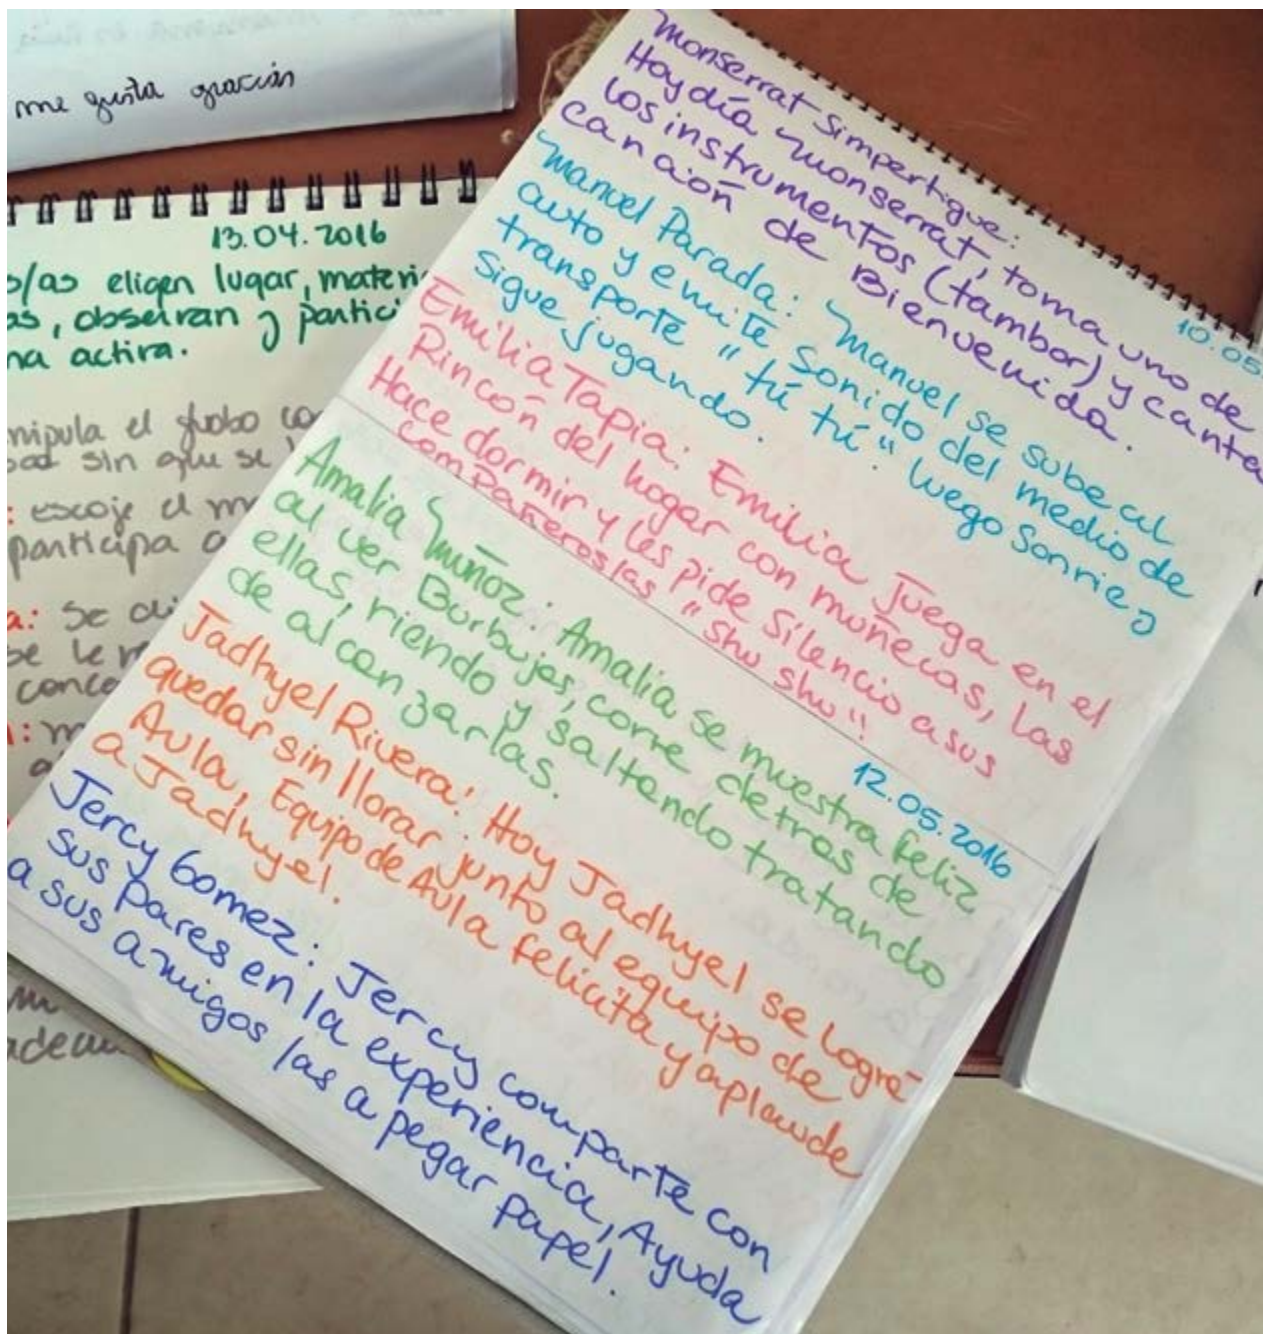 me gusta gracias
13.04.2016
s/as eligen lugar, materi
as, observan y partici
na activa.
nipula el globo co
sin que se
: escoje el m
participa a
a: Se di
se le
conce
: m
10.05
Monserrat Simpertigue:
Hoy día Monserrat, toma uno de
los instrumentos (tambor) y canta
canción de Bienvenida.
Manuel Parada: Manuel se sube al
auto y emite sonido del medio de
transporte "tú tú". luego Sonrie y
sigue jugando.
Emilia Tapia: Emilia Juega en el
Rincón del hogar con muñecas, las
Hace dormir y les pide silencio a sus
compañeros/as "shu shu"
12.05.2016
Amalia Muñoz: Amalia se muestra feliz
al ver Burbujas, corre detras de
ellas, riendo y saltando tratando
de alcanzarlas.
Jadhyel Rivera: Hoy Jadhyel se logró
quedar sin llorar junto al equipo de
Aula, Equipo de Aula felicita y aplaude
a Jadhyel.
Jercy Gomez: Jercy comparte con
sus Pares en la experiencia, Ayuda
a sus amigos/as a pegar papel.